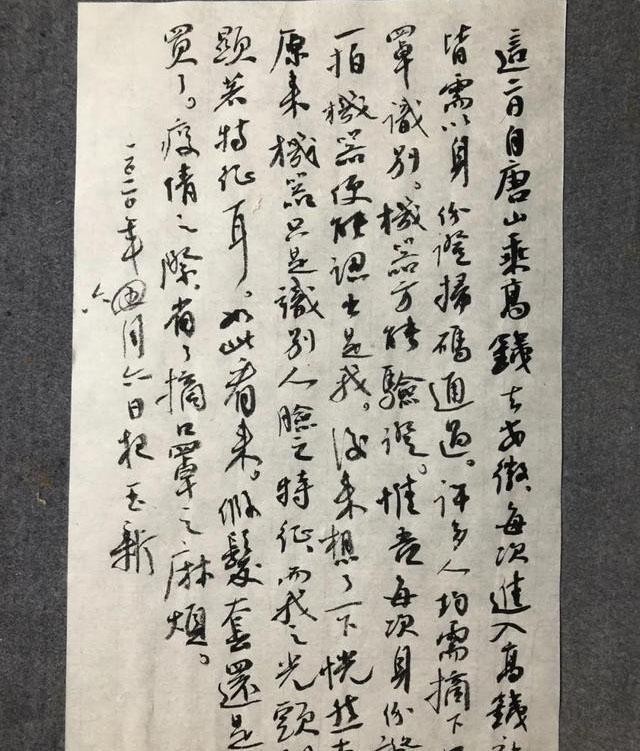 這二日自唐山乘高鐵去安徽，每次進入高鐵
皆需以身份證掃碼通過。許多人均需摘下
罩識別。機器方能驗證。惟吾每次身份證
一拍機器便能認出是我。後来想了一下恍然
原来機器只是識別人臉之特征，而我之光頭
顕著特征耳。如此看来。假髮套還是
買了。疫情之際省了摘口罩之麻煩。
二〇二〇年四月六日
六
玉新